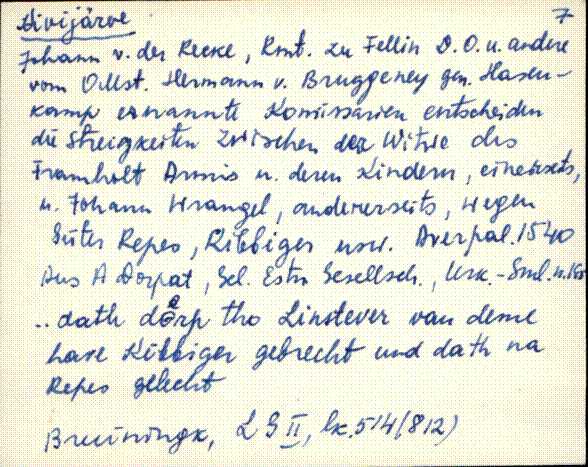 Kivijärve 7
Johann v. der Recke, Kmt. zu Fellin D.O. u. andere
vom O.Mst. Hermann v. Bruggeney gen. Hasen-
kamp ernannte Komissarien entscheiden
die Streigkeiten zwischen der Witwe des
Fromholt Annis u. deren Kindern, einerseits,
u. Johann Wrangel, andererseits, wegen
Güter Repes, Kibbiger usw. Averpal. 1540
Aus A Dorpat, Gel. Estn Gesellsch., Urk.-Sml. n.
.. dath dorp tho Linstever van deme
have Kibbiger gebrecht und dath na
Repes gelecht
Bruiningk, LG II, lk. 514 (812)